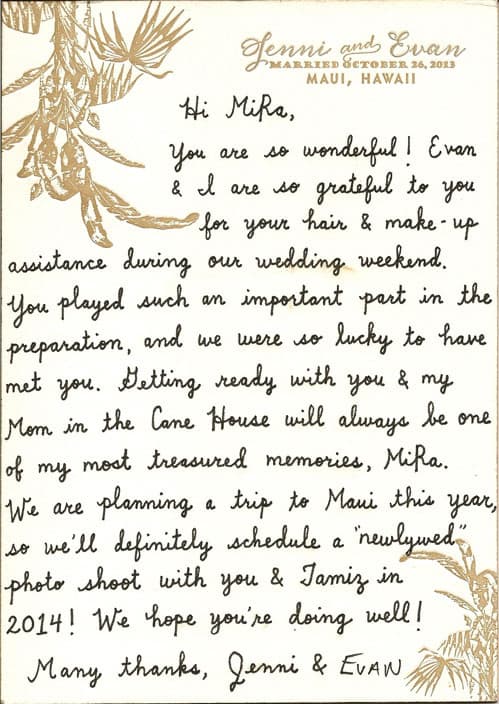 Jenni and Evan
MARRIED OCTOBER 26, 2013
MAUI, HAWAII
Hi MiRa,
You are so wonderful! Evan
& I are so grateful to you
for your hair & make-up
assistance during our wedding weekend.
You played such an important part in the
preparation, and we were so lucky to have
met you. Getting ready with you & my
Mom in the Cane House will always be one
of my most treasured memories, MiRa.
We are planning a trip to Maui this year,
so we'll definitely schedule a "newlywed"
photo shoot with you & Tamiz in
2014! We hope you're doing well!
Many thanks, Jenni & EVAN